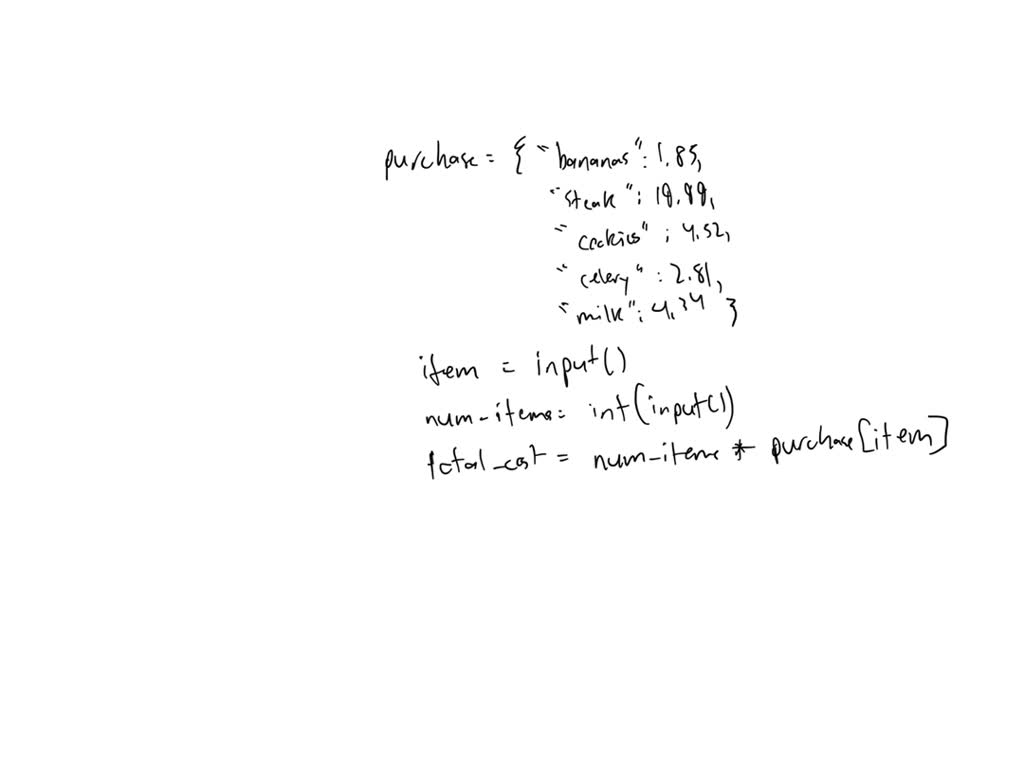 purchase = { "bananas": 1.85,
"steak": 19.99,
"cookies" : 4.52,
"celery" : 2.81,
"milk": 4.34 }
item = input()
num_items = int(input())
total_cost = num_items * purchase[item]